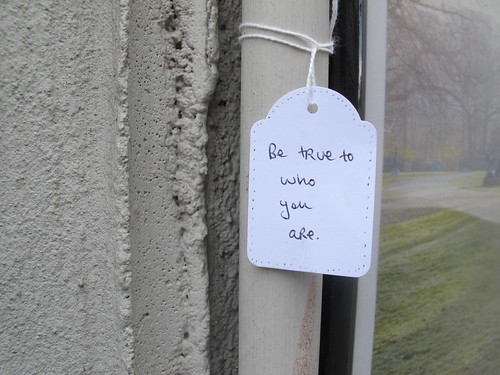 Be tRue to
who
you
aRe.